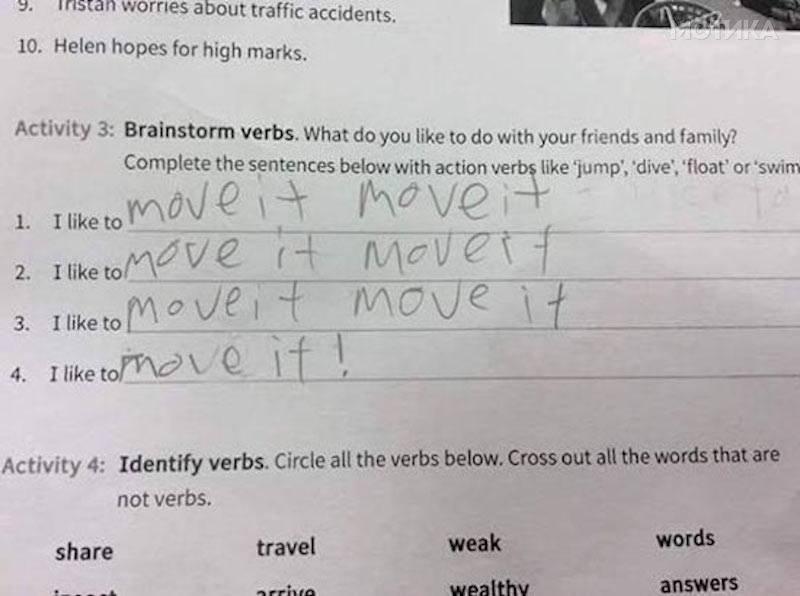 9. Tristan worries about traffic accidents.
МОТИКА
10. Helen hopes for high marks.
Activity 3: Brainstorm verbs. What do you like to do with your friends and family?
Complete the sentences below with action verbs like 'jump', 'dive', 'float' or 'swim
1. I like to move it move it
2. I like to move it move it
3. I like to move it move it
4. I like to move it!
Activity 4: Identify verbs. Circle all the verbs below. Cross out all the words that are
not verbs.
share travel weak words
arrive wealthy answers